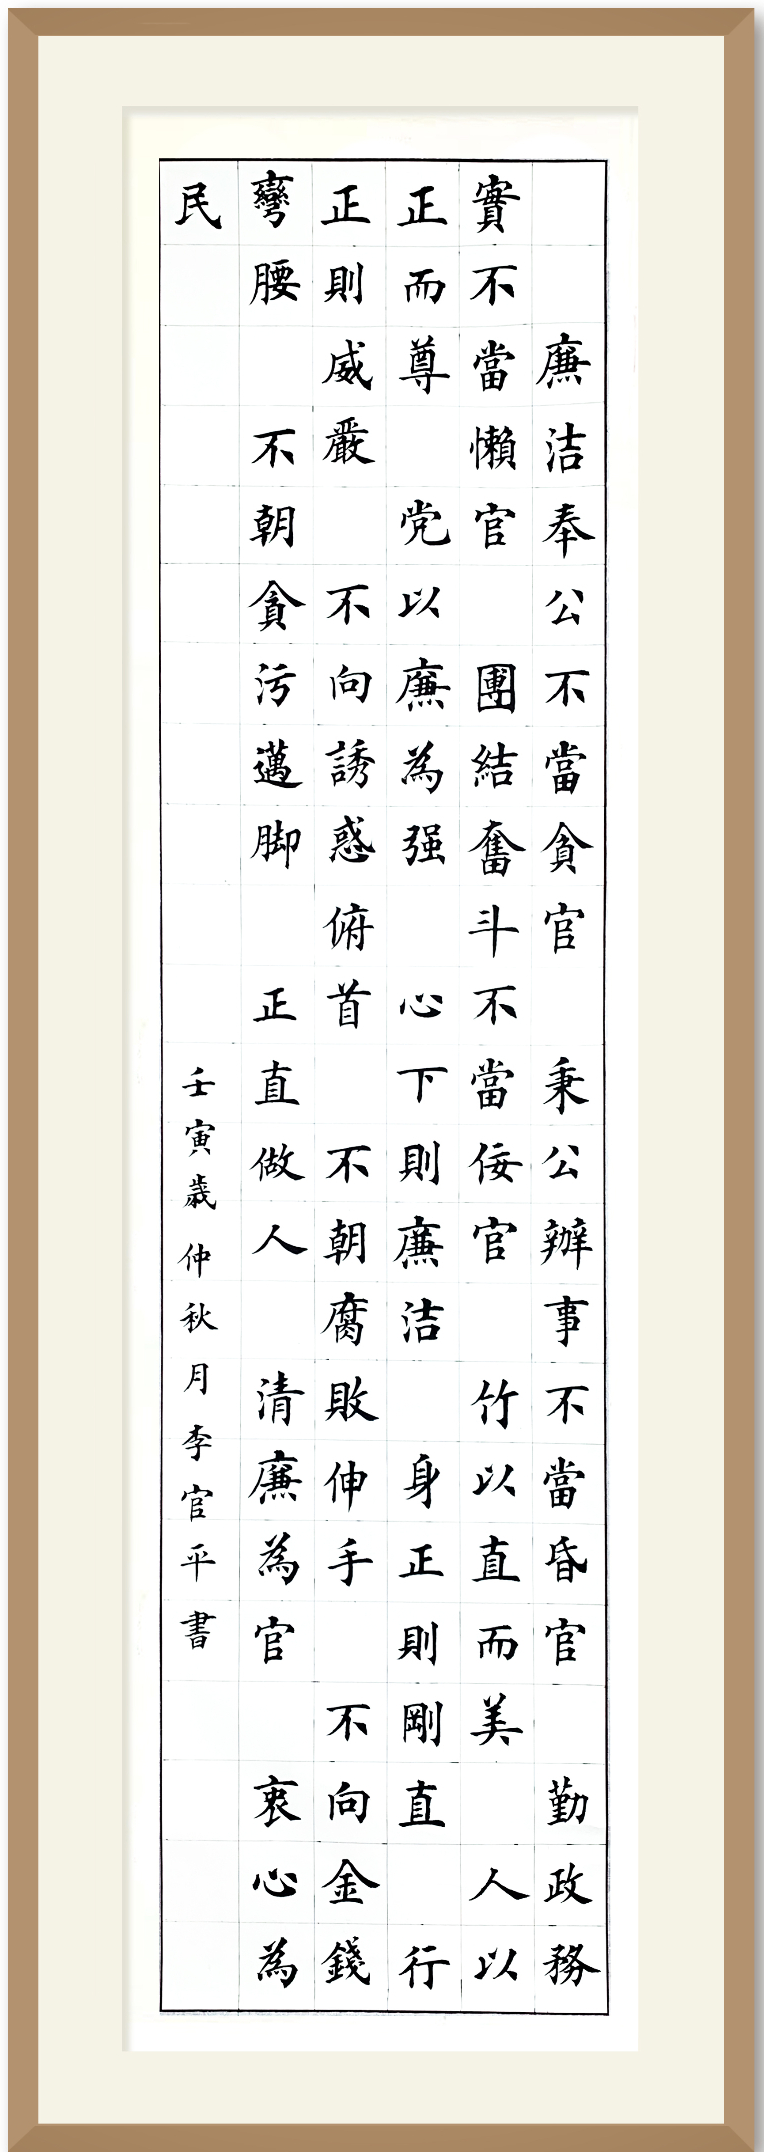 廉洁奉公不當貪官　秉公辦事不當昏官　勤政務
實不當懶官　團結奮斗不當佞官　竹以直而美　人以
正而尊　党以廉為强　心下則廉洁　身正則剛直　行
正則威嚴　不向誘惑俯首　不朝腐敗伸手　不向金錢
彎腰　不朝貪污邁脚　正直做人　清廉為官　衷心為
民
壬寅歲仲秋月李官平書